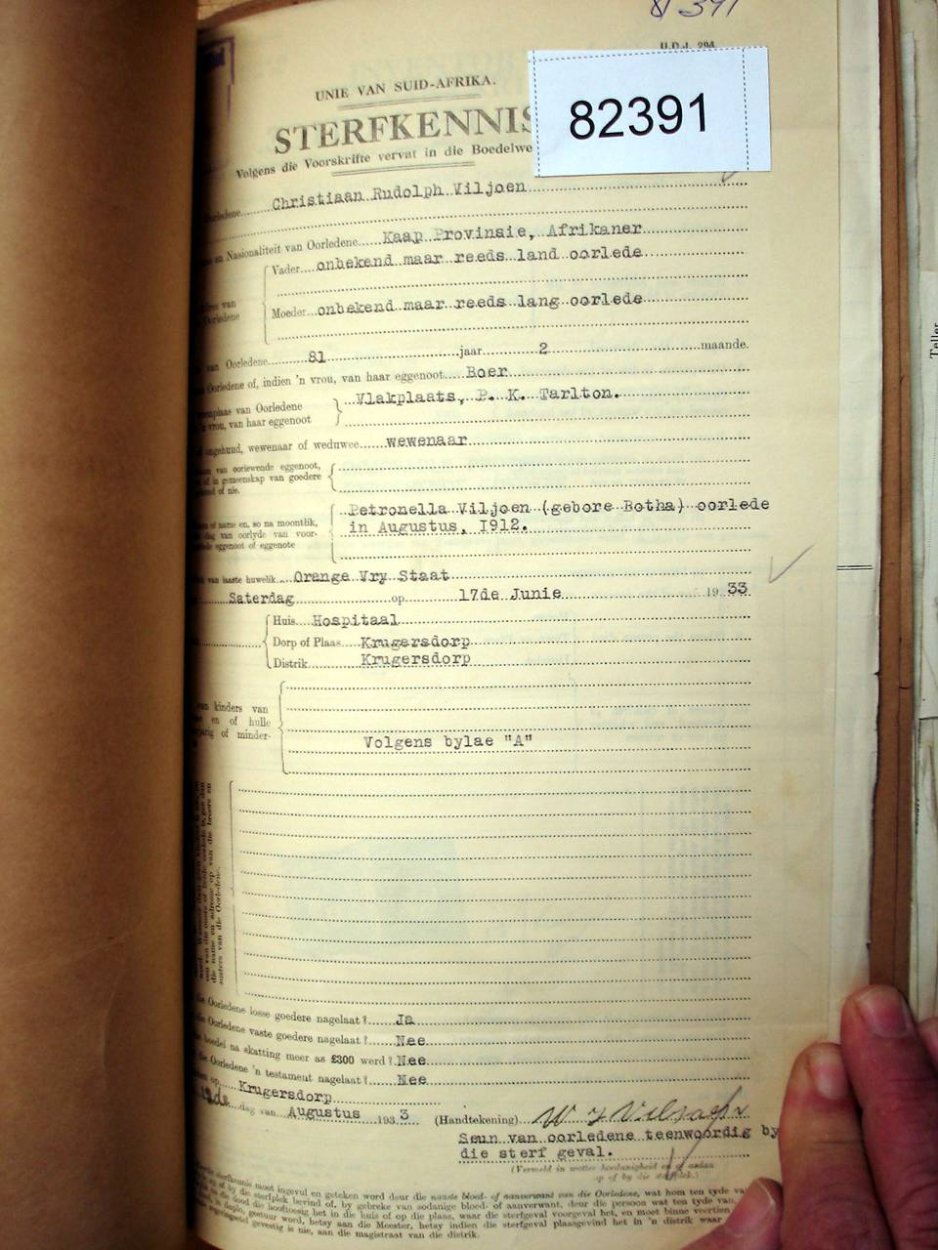 81391
U.D.J. 294.
82391
UNIE VAN SUID-AFRIKA.
STERFKENNIS
Volgens die Voorskrifte vervat in die Boedelwe
Christiaan Rudolph Viljoen
en Nasionaliteit van Oorledene Kaap Provinsie, Afrikaner
Vader onbekend maar reeds land oorlede
Moeder onbekend maar reeds lang oorlede
van Oorledene 81 jaar 2 maande.
Oorledene of, indien 'n vrou, van haar eggenoot Boer
van Oorledene Vlakplaats, P. K. Tarlton.
vrou, van haar eggenoot
ongehuud, wewenaar of weduwee wewenaar
van oorlewende eggenoot,
of in gemeenskap van goedere
of nie.
Petronella Viljoen (gebore Botha) oorlede
of name en, so na moontlik,
dag van oorlyde van voor-
in Augustus, 1912.
eggenoot of eggenote
van laaste huwelik Orange Vry Staat
Saterdag op 17de Junie 19 33
Huis Hospitaal
Dorp of Plaas Krugersdorp
Distrik Krugersdorp
kinders van
en of hulle
of minder-
Volgens bylae "A"
Oorledene losse goedere nagelaat? Ja
Oorledene vaste goedere nagelaat? Nee
boedel na skatting meer as £300 werd? Nee
die Oorledene 'n testament nagelaat? Nee
op Krugersdorp
dag van Augustus 193 3 (Handtekening)
Seun van oorledene teenwoordig by
die sterf geval.
sterfkennis moet ingevul en geteken word deur die naaste bloed- of aanverwant van die Oorledene, wat hom ten tyde va
of by die sterfplek bevind of, by gebreke van sodanige bloed- of aanverwant, deur die persoon wat ten tyde van
die hooftoesig het in die huis of op die plaas, waar die sterfgeval voorgeval het, en moet binne veertien
gestuur word, hetsy aan die Meester, hetsy indien die sterfgeval plaasgevind het in 'n distrik waar
gevestig is nie, aan die magistraat van die distrik.
Teller